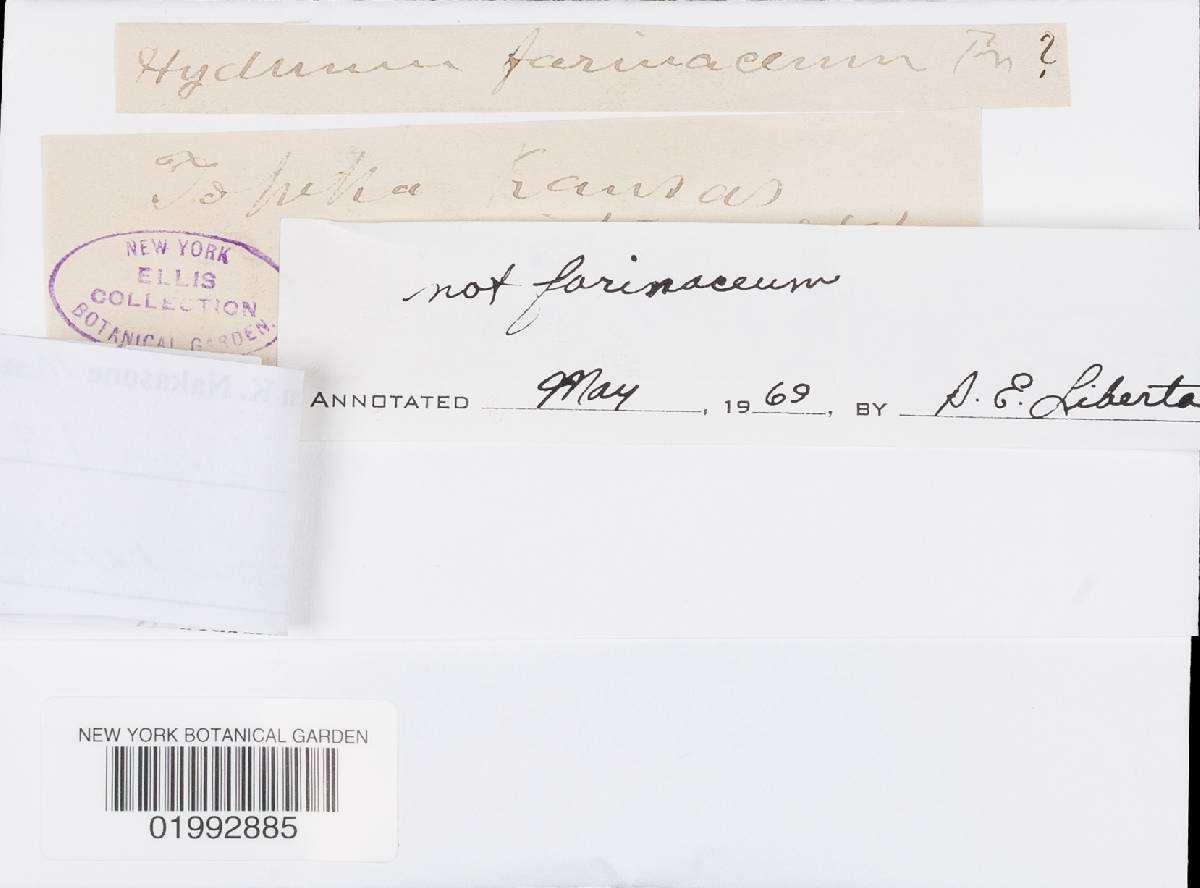 Hydnum farinaceum Fr ?
Topeka Kansas
NEW YORK
ELLIS
COLLECTION
BOTANICAL GARDEN.
not farinaceum
K. Nakasone
ANNOTATED May, 1969, BY A. E. Liberta
NEW YORK BOTANICAL GARDEN
01992885